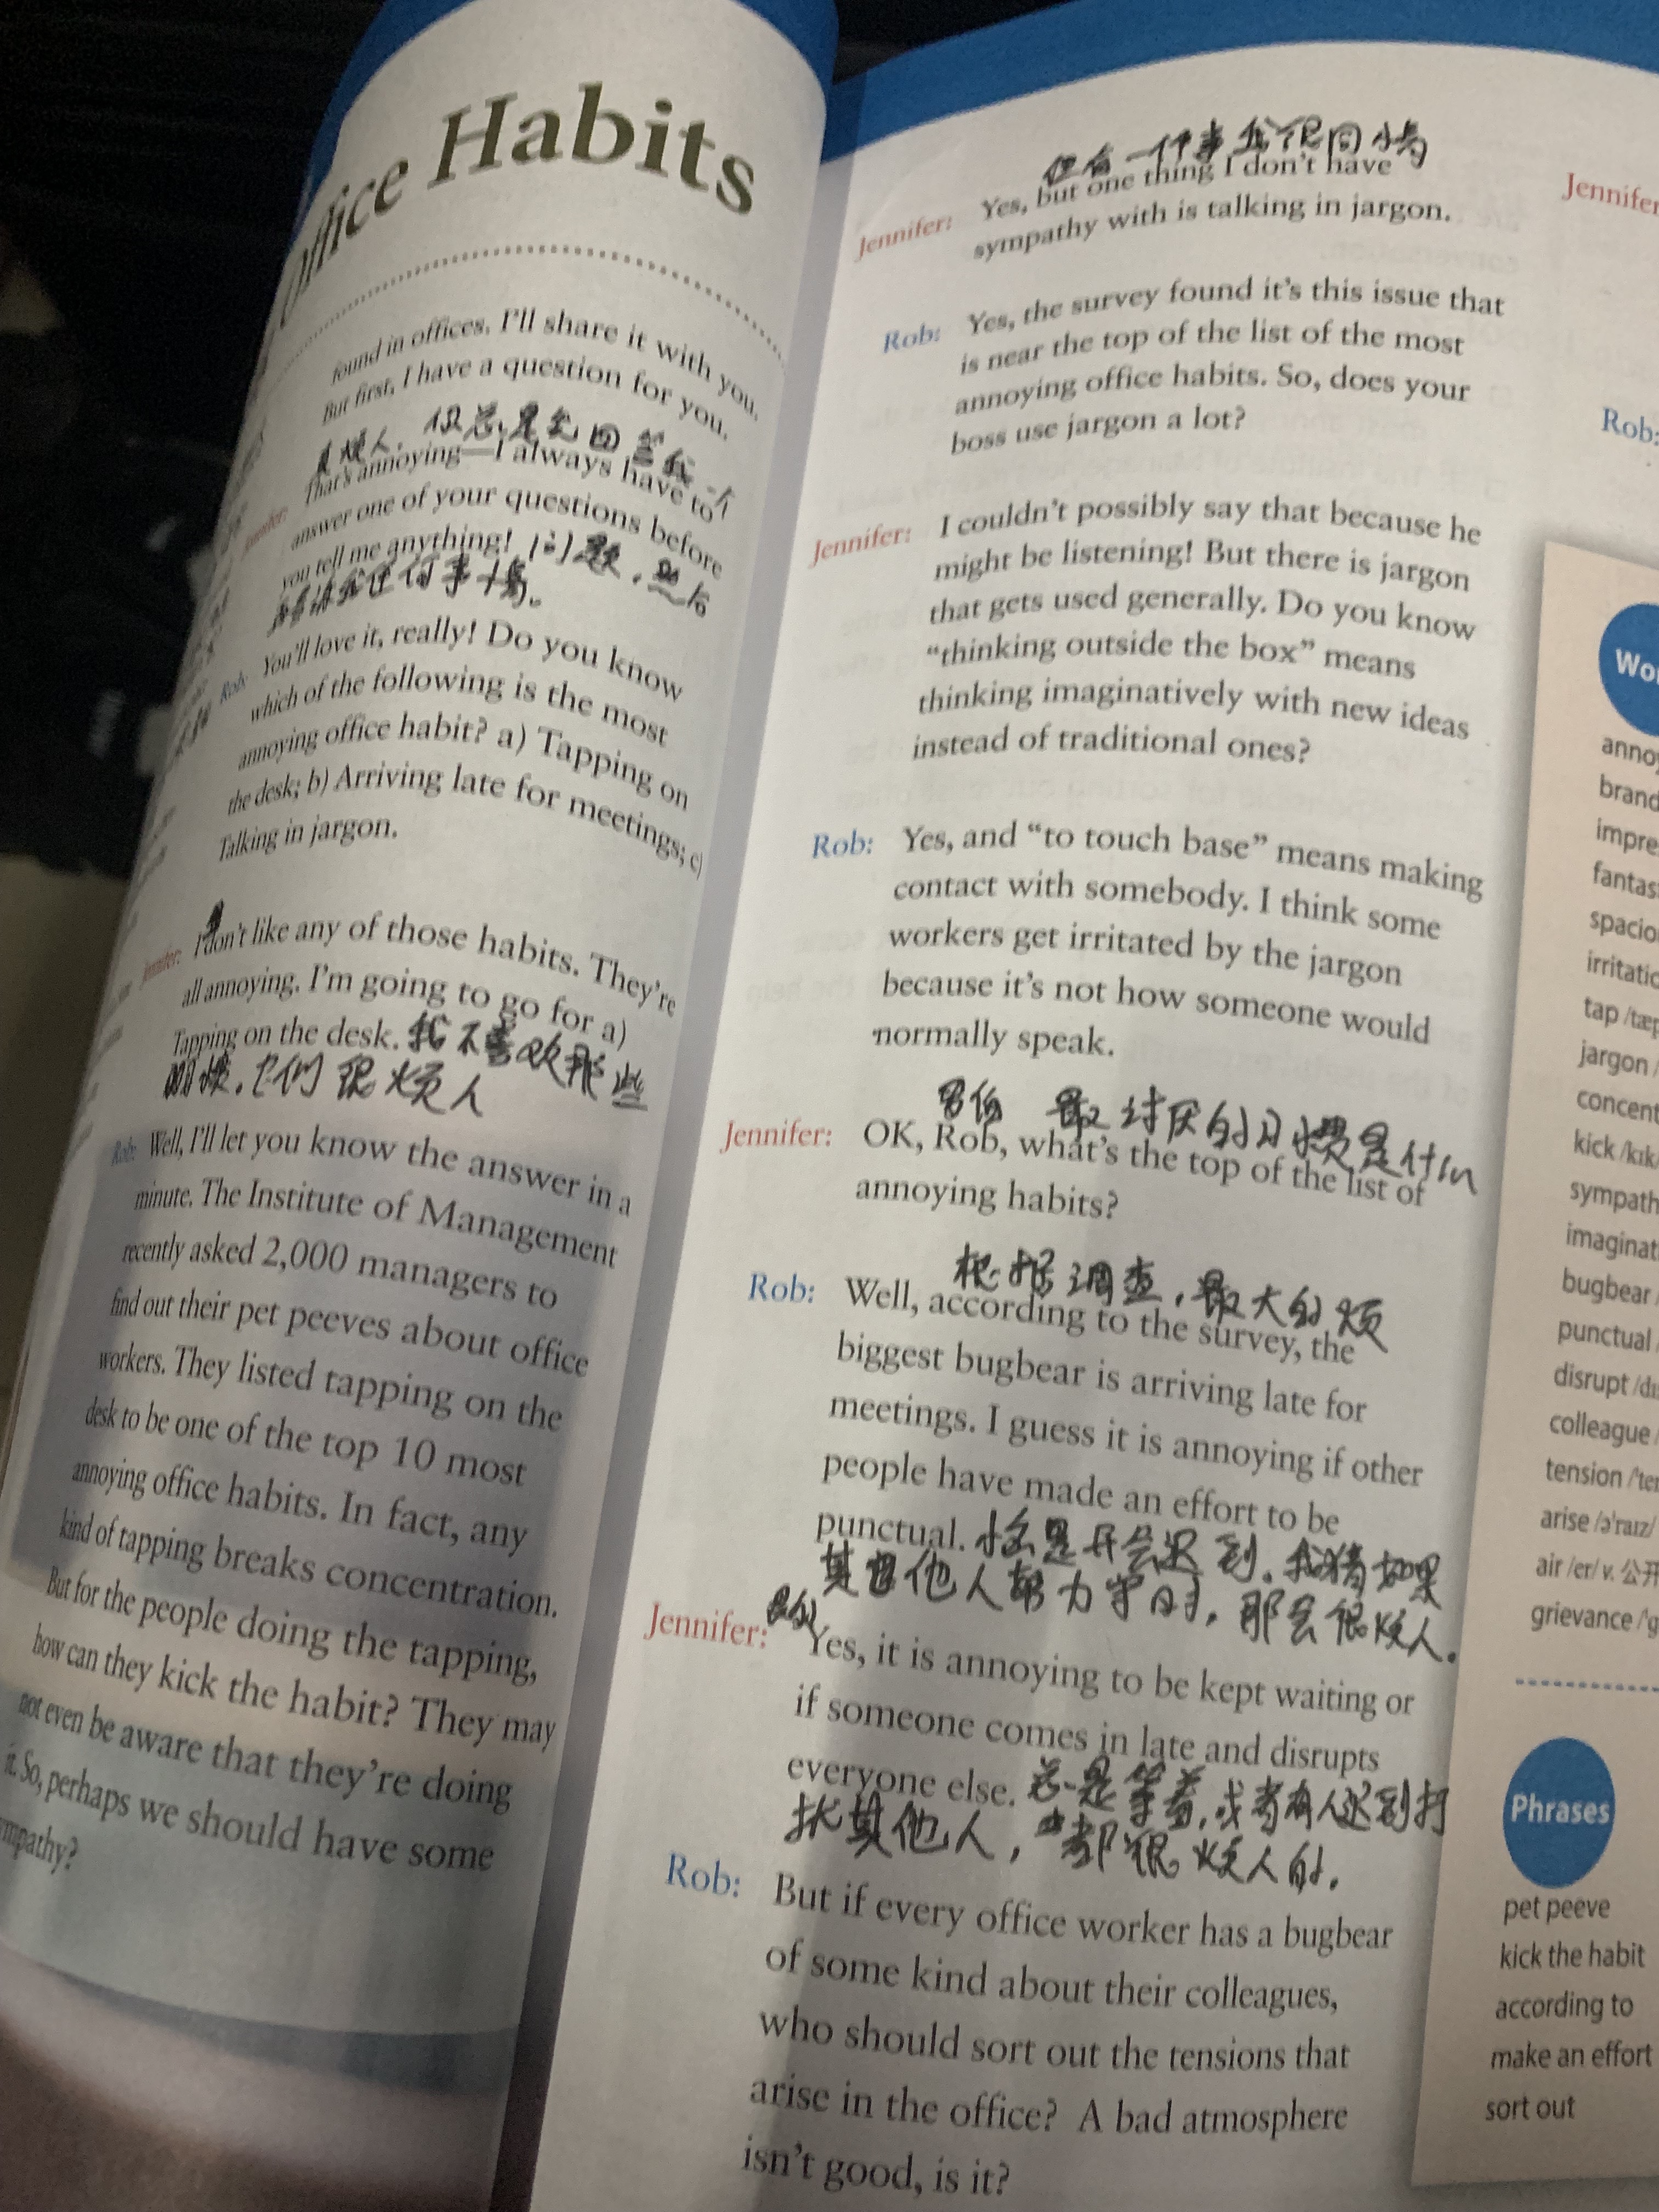 Office Habits
found in offices. I'll share it with you.
But first, I have a question for you.
真烦人. 总是 回答 一个
Jennifer: That's annoying—I always have to
answer one of your questions before
you tell me anything! 问题,然后
任何事情。
Rob: You'll love it, really! Do you know
which of the following is the most
annoying office habit? a) Tapping on
the desk; b) Arriving late for meetings; c)
Talking in jargon.
Jennifer: I don't like any of those habits. They're
all annoying. I'm going to go for a)
Tapping on the desk. 我不喜欢那些
习惯.它们很烦人
Rob: Well, I'll let you know the answer in a
minute. The Institute of Management
recently asked 2,000 managers to
find out their pet peeves about office
workers. They listed tapping on the
desk to be one of the top 10 most
annoying office habits. In fact, any
kind of tapping breaks concentration.
But for the people doing the tapping,
how can they kick the habit? They may
not even be aware that they're doing
it. So, perhaps we should have some
sympathy?
但有一件事我很同情
Jennifer: Yes, but one thing I don't have
sympathy with is talking in jargon.
Rob: Yes, the survey found it's this issue that
is near the top of the list of the most
annoying office habits. So, does your
boss use jargon a lot?
Jennifer: I couldn't possibly say that because he
might be listening! But there is jargon
that gets used generally. Do you know
“thinking outside the box” means
thinking imaginatively with new ideas
instead of traditional ones?
Rob: Yes, and “to touch base” means making
contact with somebody. I think some
workers get irritated by the jargon
because it's not how someone would
normally speak.
罗伯 最讨厌的习惯是什么
Jennifer: OK, Rob, what's the top of the list of
annoying habits?
根据调查,最大的烦
Rob: Well, according to the survey, the
biggest bugbear is arriving late for
meetings. I guess it is annoying if other
people have made an effort to be
punctual. 恼是开会迟到.我猜如果
其他人努力守时,那会很烦人.
Jennifer: Yes, it is annoying to be kept waiting or
if someone comes in late and disrupts
everyone else. 总是等着,或者有人迟到打
扰其他人,都很烦人的.
Rob: But if every office worker has a bugbear
of some kind about their colleagues,
who should sort out the tensions that
arise in the office? A bad atmosphere
isn't good, is it?
Jennifer
Rob:
tap
jargon
kick /kɪk/
bugbear
punctual
disrupt
colleague
tension
arise /əˈraɪz/
air /er/ v. 公开
grievance
Phrases
pet peeve
kick the habit
according to
make an effort
sort out